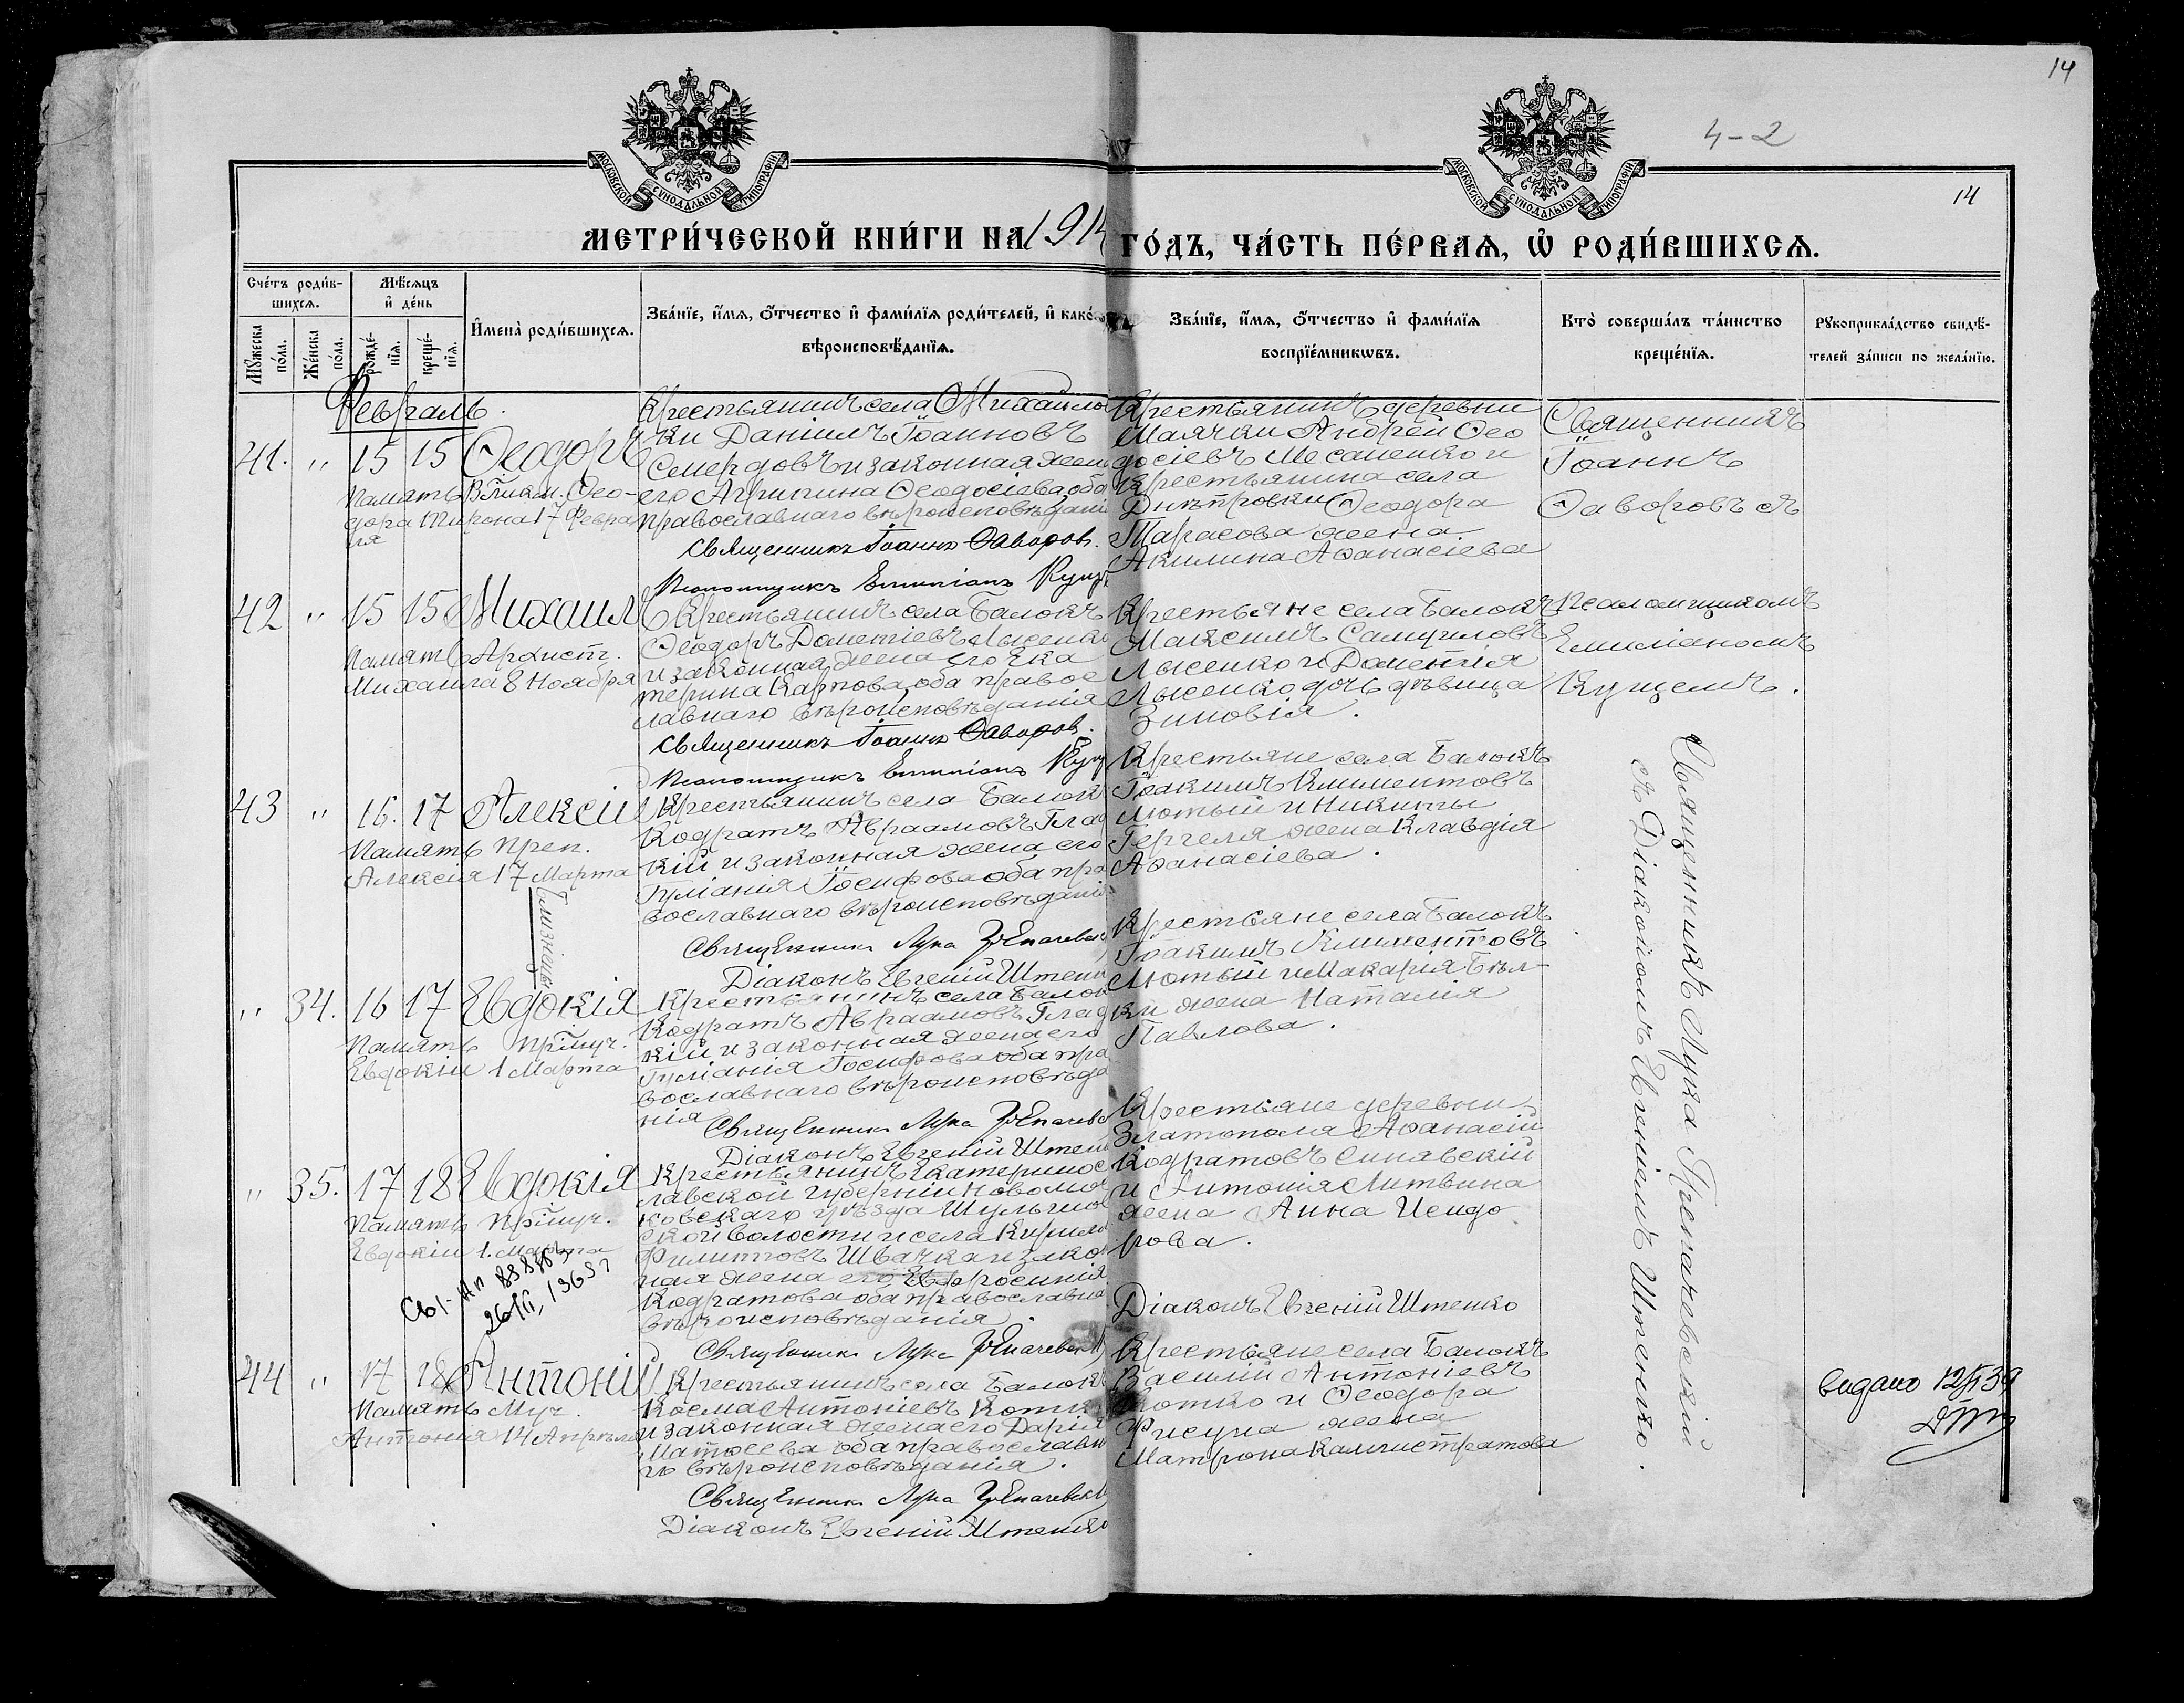 14
4-2
14
МОСКОВСКОЙ СѴНОДАЛЬНОЙ ТИПОГРАФІИ
МОСКОВСКОЙ СѴНОДАЛЬНОЙ ТИПОГРАФІИ
МЕТРИ́ЧЕСКОЙ КНИ́ГИ НА 1914 ГО́ДЪ, ЧА́СТЬ ПЕ́РВАѦ, Ѿ РОДИ́ВШИХСѦ.
Сче́тъ роди́в-
шихсѧ.
Мꙋ́жеска по́ла.
Же́нска по́ла.
Мѣ́сѧцъ
и҆ де́нь
рожде́-
нїѧ.
креще́-
нїѧ.
И҆мена̀ роди́вшихсѧ.
Зва́нїе, и҆́мѧ, о҆́тчество и҆ фами́лїѧ роди́телей, и҆ како́-
вѣроисповѣ́данїѧ.
Зва́нїе, и҆́мѧ, о҆́тчество и҆ фами́лїѧ
воспрїе́мникѡвъ.
Кто̀ соверша́лъ та́инство
креще́нїѧ.
Рꙋкоприкла́дство свидѣ́-
телей за́писи по жела́нїю.
Февраль.
41. " 15 15 Ѳеодоръ
Память Вликм. Ѳео-
дора Тирона 17 Февра
ля
Крестьянинъ села Михайлов
ки Даніилъ Іоанновъ
Семердовъ и законная жена
его Агрипина Ѳеодосіева, оба
православнаго вѣроисповѣданія
Священникъ Іоаннъ Ѳаворовъ.
Псаломщикъ Емиліанъ Кущ
Крестьянинъ деревни
Маячки Андрей Ѳео
досіевъ Месаненко и
Крестьянина села
Днѣпровки Ѳеодора
Тарасова жена
Акилина Аѳанасіева
Священникъ
Іоаннъ
Ѳаворовъ съ
42 " 15 15 Михаилъ
Память Архист.
Михаила 8 Ноября
Крестьянинъ села Балокъ
Ѳеодоръ Дометіевъ Лысенко
и законная жена его Ека
терина Карпова, оба правос
лавнаго вѣроисповѣданія
Священникъ Іоаннъ Ѳаворовъ.
Псаломщикъ Емиліанъ Кущ
Крестьяне села Балокъ
Максимъ Самуиловъ
Лысенко и Дометія
Лысенко дочь дѣвица
Зиновія.
Псаломщикомъ
Емиліаномъ
Кущемъ.
43 " 16. 17 Алексій
Память Преп.
Алексія 17 Марта
Близнецы
Крестьянинъ села Балок
Кодратъ Авраамовъ Глад
кій и законная жена его
Іуліанія Іосифова оба пра
вославнаго вѣроисповѣданія
Священникъ Лука Грепачевск
Діаконъ Евгеній Штен
Крестьяне села Балокъ
Іоакимъ Климентовъ
Лютый и Никиты
Гергеля жена Клавдія
Аѳанасіева.
" 34. 16 17 Евдокія
Память Прпмуч.
Евдокіи 1 Марта
Крестьянинъ села Балок
Кодратъ Авраамовъ Глад
кій и законная жена его
Іуліанія Іосифова оба пра
вославнаго вѣроисповѣда
нія
Священникъ Лука Грепачевс
Діаконъ Евгеній Штен
Крестьяне села Балокъ
Іоакимъ Климентовъ
Лютый и Макарія Бѣл-
ки жена Наталія
Павлова.
" 35. 17 18 Евдокія
Память Прпмуч.
Евдокіи 1. Марта
26/III, 1965г
Крестьянинъ Екатеринос
лавской губерніи Новомос
ковскаго уѣзда Шульгов
ской волости и села Кирилъ
Филипповъ Швачка и закон
ная жена его Евфросинія
Кодратова оба православна
вѣроисповѣданія.
Священникъ Лука Грепачевскій
Крестьяне деревни
Златополя Аѳанасій
Кодратовъ Синявскій
и Антонія Литвина
жена Анна Исидо
рова.
Діаконъ Евгеній Штенко
44 " 17 18 Антоній
Память Муч.
Антонія 14 Апрѣля
Крестьянинъ села Балокъ
Косма Антоніевъ Котко
и законная жена его Дарія
Матѳеева оба православна
го вѣроисповѣданія.
Священникъ Лука Грепачевскі
Діаконъ Евгеній Штенко
Крестьяне села Балокъ
Василій Антоніевъ
Котко и Ѳеодора
Фисуна жена
Матрона Каллистратова
Священникъ Лука Грепачевскій
съ Діакономъ Евгеніемъ Штенко.
видано 12/I 39